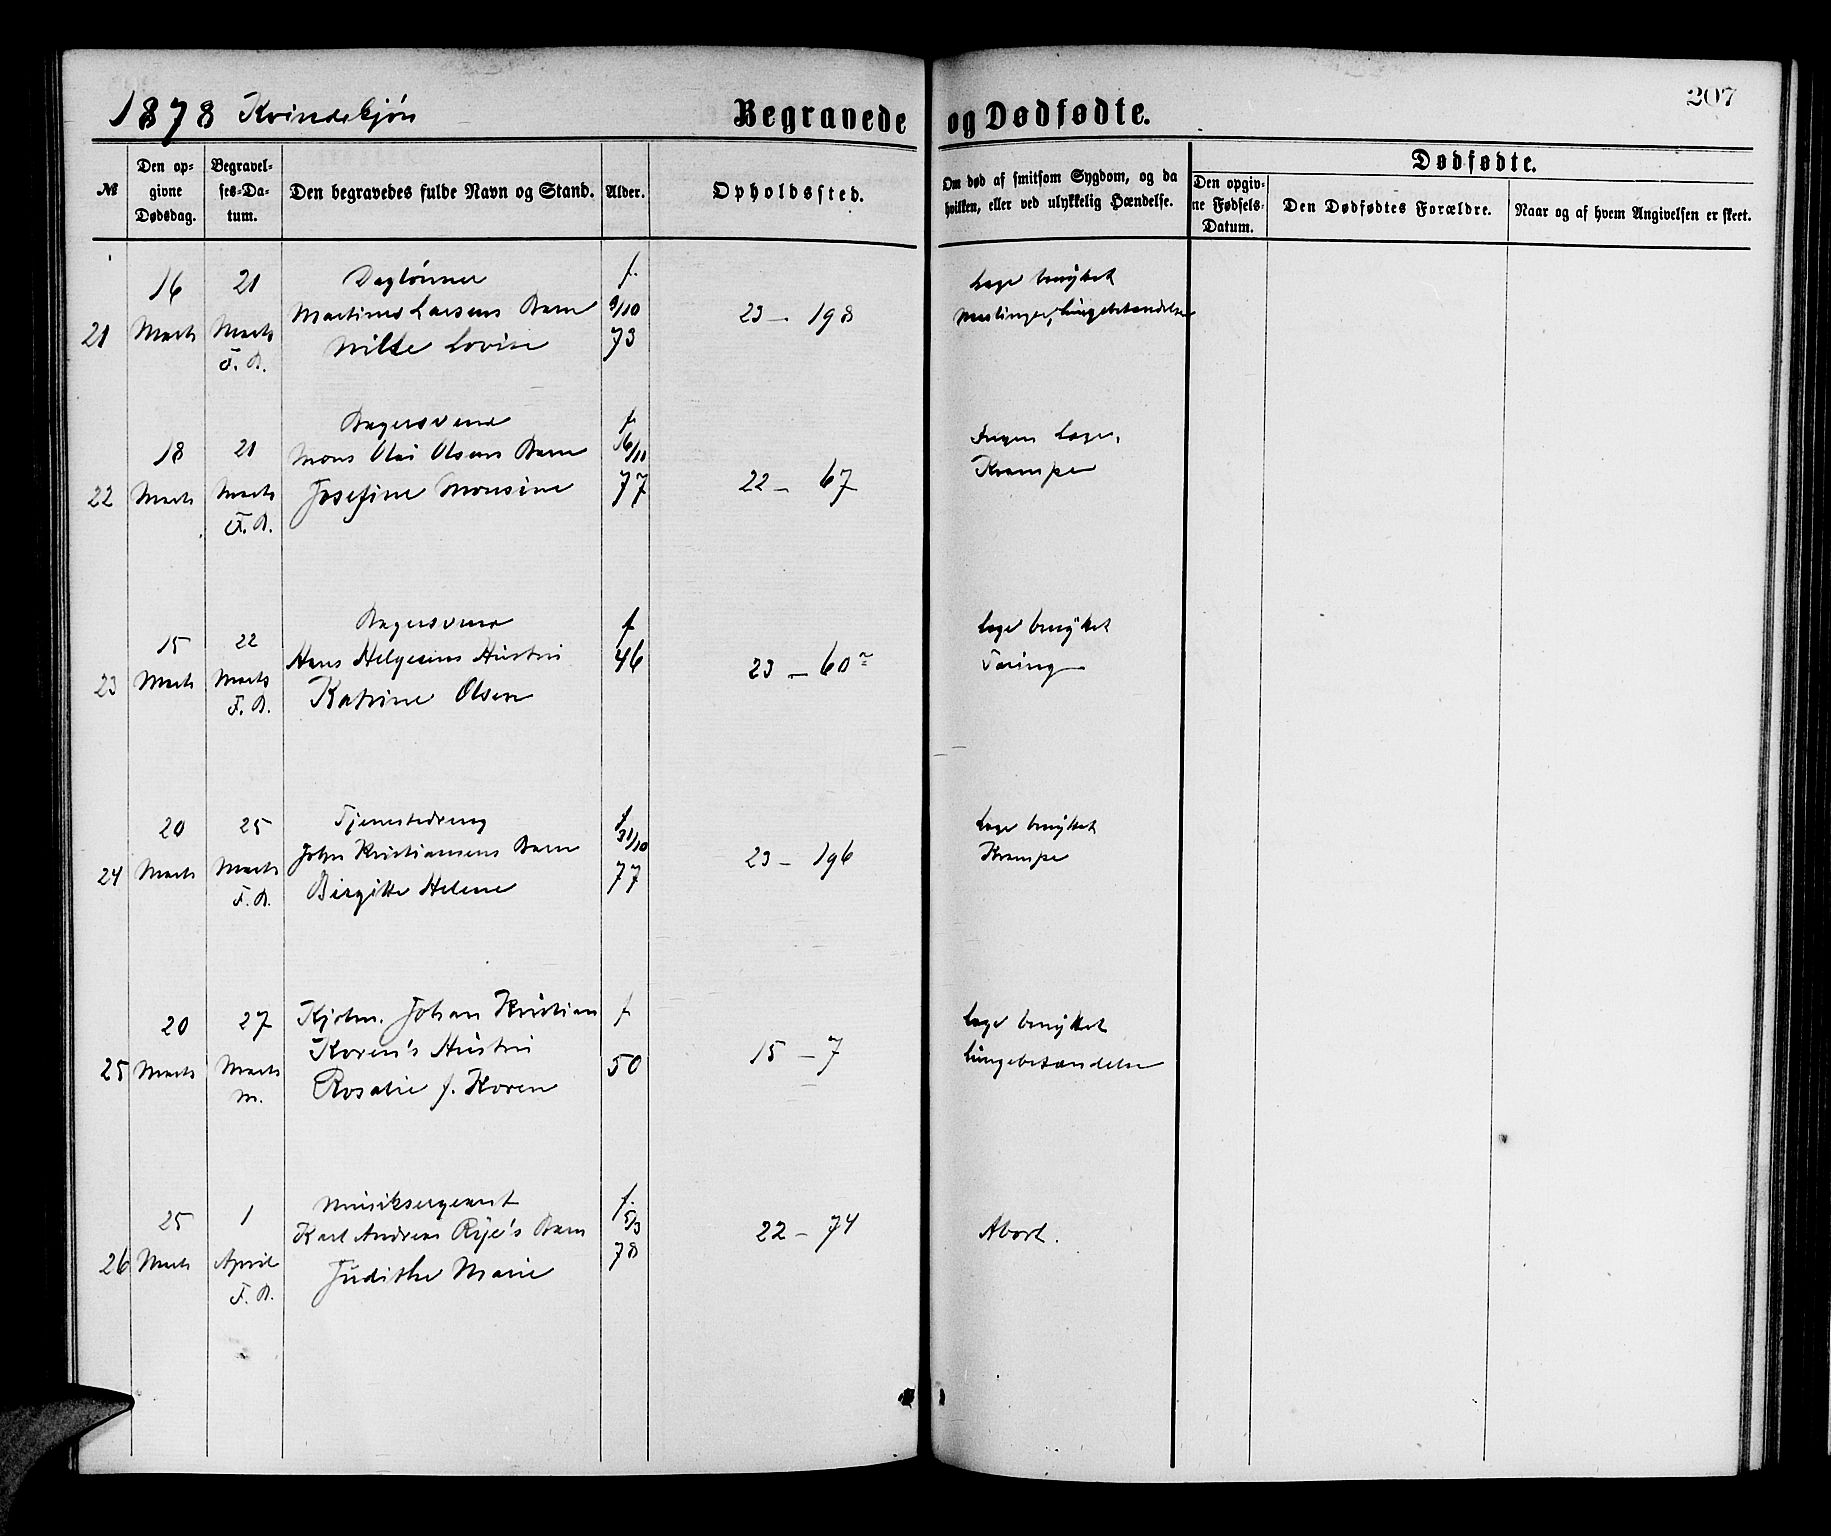 1878 Kvindekjøn
Begravede og Dødfødte.
207
№
Den opgivne Dødsdag.
Begravelses-Datum.
Den begravedes fulde Navn og Stand.
Alder.
Opholdssted.
Om død af smitsom Sygdom, og da hvilken, eller ved ulykkelig Hændelse.
Dødfødte.
Den opgivne Fødsels-Datum.
Den Dødfødtes Forældre.
Naar og af hvem Angivelsen er skeet.
21
16 Marts
21 Marts
F. B.
Daglønner
Martinus Larsens Barn
Milde Lovise
f. 9/10 73
23 - 198
Læge benyttet
Meslinger, Lungebetændelse
22
18 Marts
21 Marts
F. B.
Bagersvend
Mons Olai Olsens Barn
Josefine Monsine
f. 16/11 77
22 - 67
Ingen Læge,
Krampe
23
15 Marts
22 Marts
F. B.
Bagersvend
Hans Helgesens Hustru
Katrine Olsen
f 46
23 - 60
Læge benyttet
Tæring
24
20 Marts
25 Marts
F. B.
Tjenestedreng
John Kristiansens Barn
Birgitte Helene
f 31/10 77
23 - 196
Læge benyttet
Krampe
25
20 Marts
27 Marts
M.
Kjøbm. Johan Kristian
Koren's Hustru
Rosalie f. Koren
f 50
15 - 7
Læge benyttet
Lungebetændelse
26
25 Marts
1 April
F. B.
Musiksergeant
Karl Andreas Rye's Barn
Judithe Marie
f. 5/3 78
22 - 74
Abort.